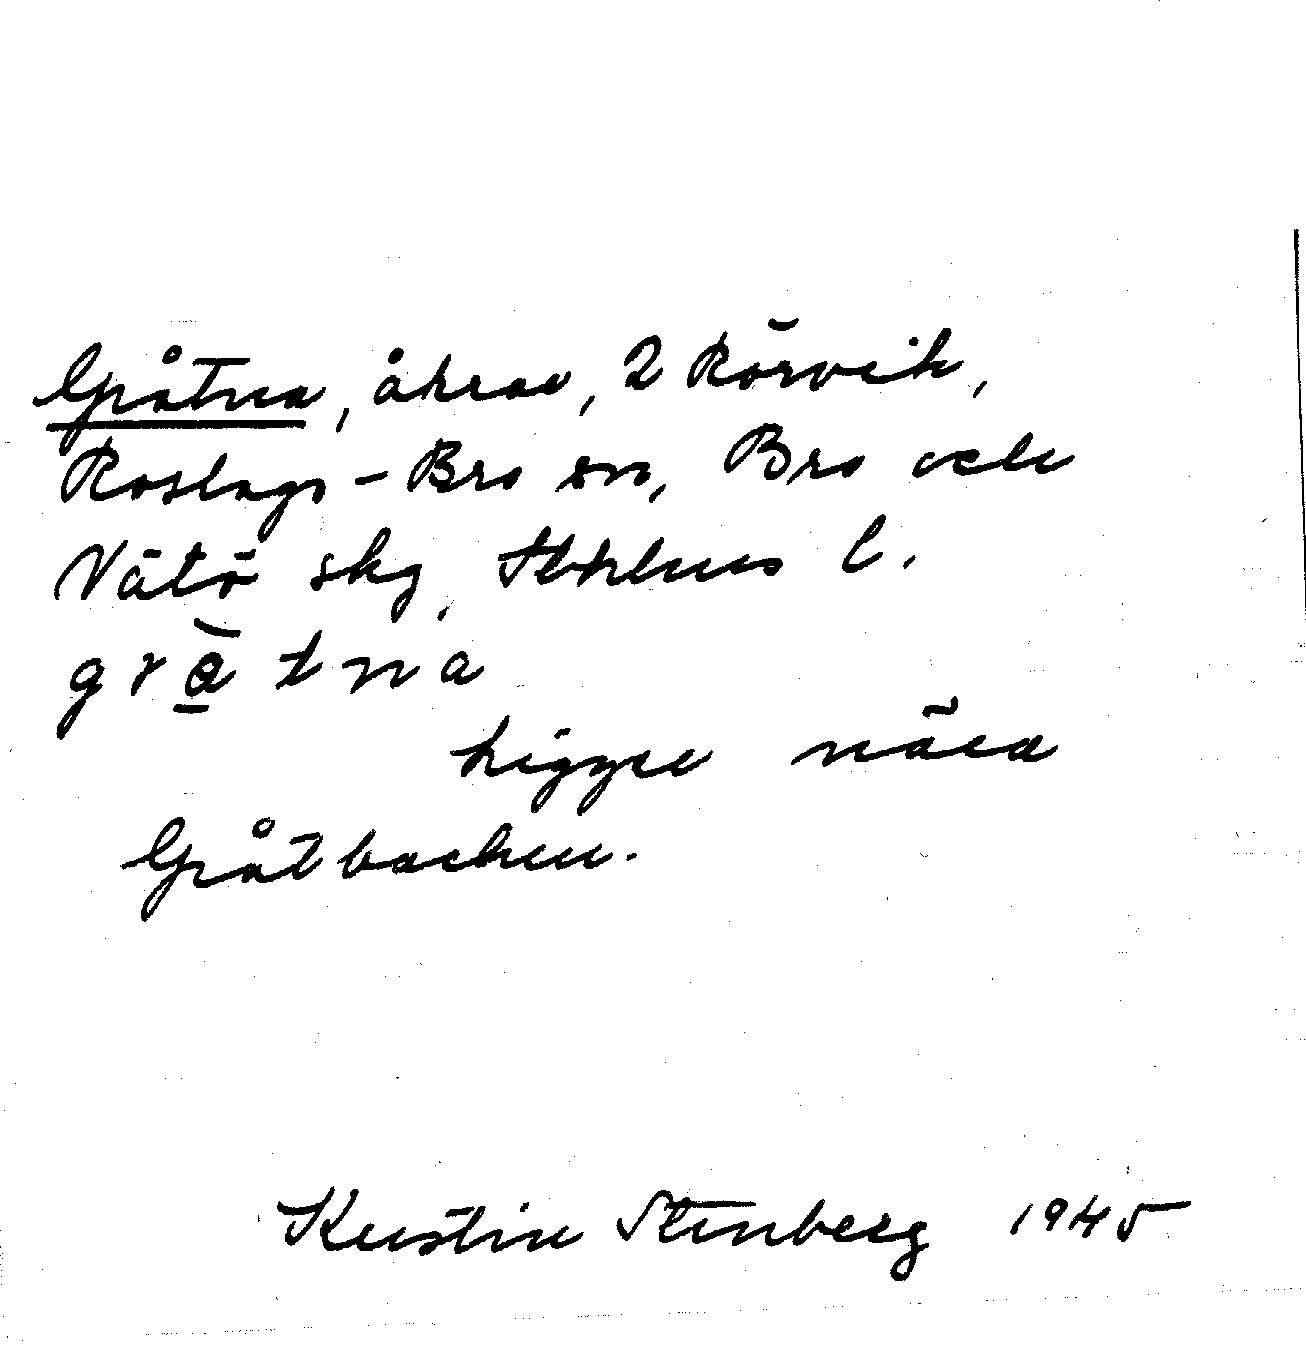 Gråtna, åkrar, 2 Rörvik,
Roslags-Bro sn, Bro och
Vätö skg, Sthlms l.
gràtna
Ligger nära
Gråtbacken.
Kerstin Stenberg 1945